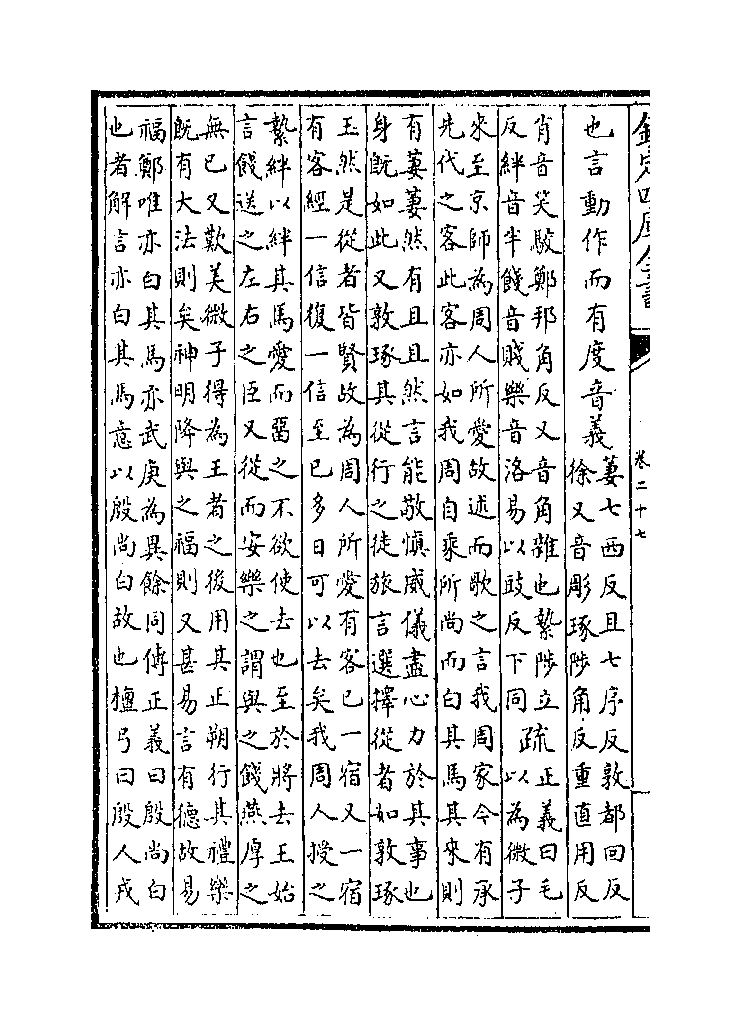 欽定四庫全書
卷二十七
也言動作而有度音義
萋七西反且七序反敦都回反
徐又音彫琢陟角反重直用反
肖音笑駁鄭邦角反又音角雜也縶陟立
反絆音半餞音賤樂音洛易以豉反下同
疏
正義曰毛
以為微子
來至京師為周人所愛故述而歌之言我周家今有承
先代之客此客亦如我周自乘所尚而白其馬其來則
有萋萋然有且且然言能敬慎威儀盡心力於其事也
身既如此又敦琢其從行之徒旅言選擇從者如敦琢
玉然是從者皆賢故為周人所愛有客已一宿又一宿
有客經一信復一信至已多日可以去矣我周人授之
縶絆以絆其馬愛而留之不欲使去也至於將去王始
言餞送之左右之臣又從而安樂之謂與之餞燕厚之
無已又歎美微子得為王者之後用其正朔行其禮樂
既有大法則矣神明降與之福則又甚易言有德故易
福鄭唯亦白其馬亦武庚為異餘同傳正義曰殷尚白
也者解言亦白其馬意以殷尚白故也檀弓曰殷人戎